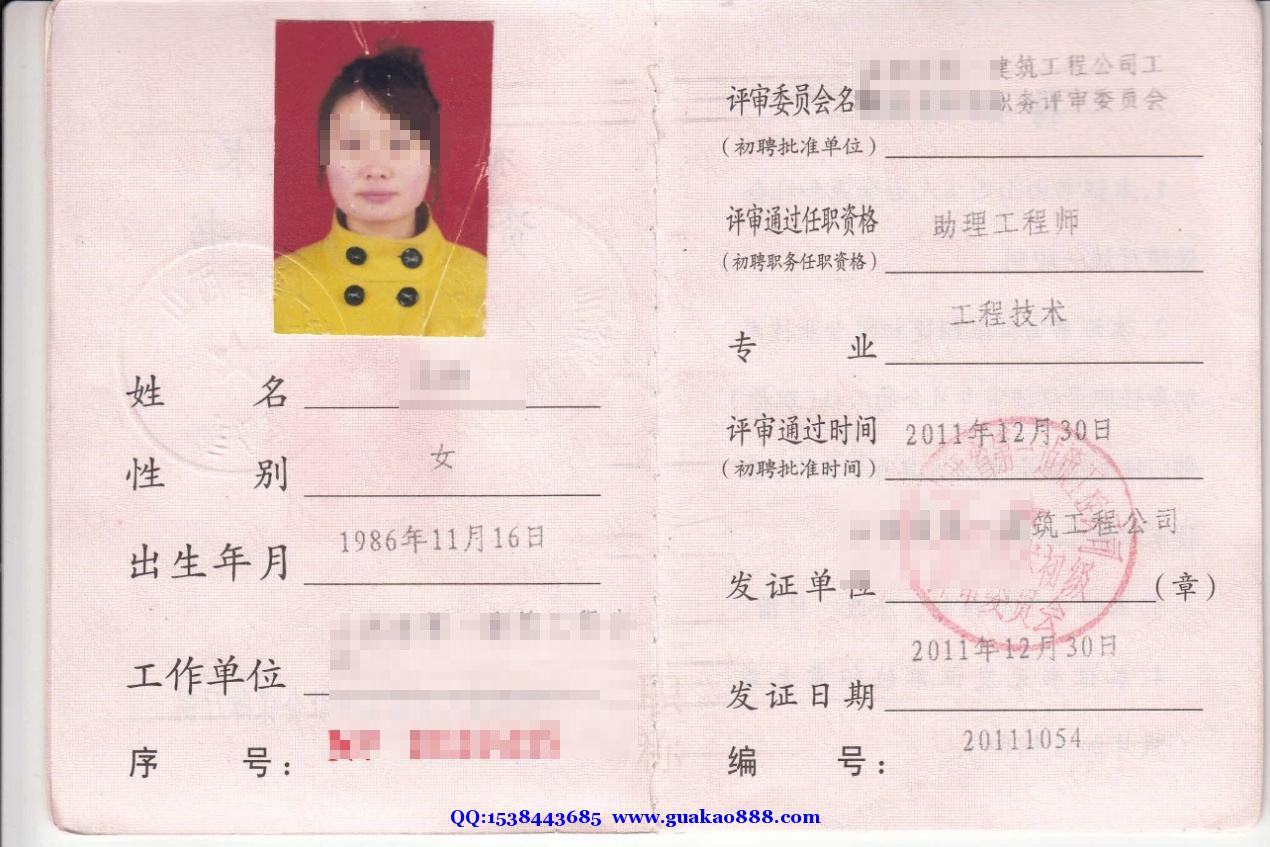 姓 名
性 别 女
出生年月 1986年11月16日
工作单位
序 号：
建筑工程公司工
评审委员会名 职务评审委员会
（初聘批准单位）
评审通过任职资格 助理工程师
（初聘职务任职资格）
专 业 工程技术
评审通过时间 2011年12月30日
（初聘批准时间）
筑工程公司
发证单位 （章）
初级
评审委员会
发证日期 2011年12月30日
编 号： 20111054
QQ:1538443685 www.guakao888.com